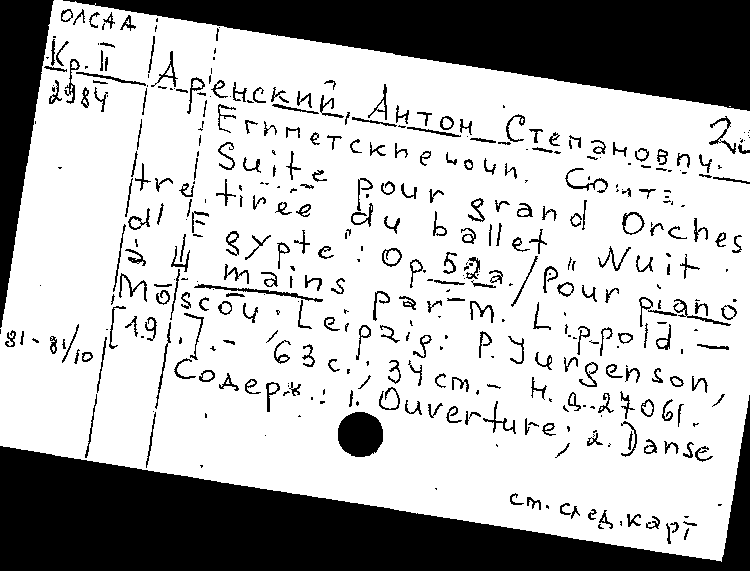 ОЛСАА
Кр. II
2984
Аренский, Антон Степанович.
Египетские ночи. Сюита.
Suite pour grand Orches
tre tirée du ballet „Nuit
d'Egypte": Op. 52a. / Pour piano
à 4 mains par M. Lippold. —
Moscou; Leipzig: P. Jurgenson,
[19..]. - 63 с.; 34 cm. - Н. д. 27061.
Содерж.: 1. Ouverture; 2. Danse
81-81/10
см. след. карт